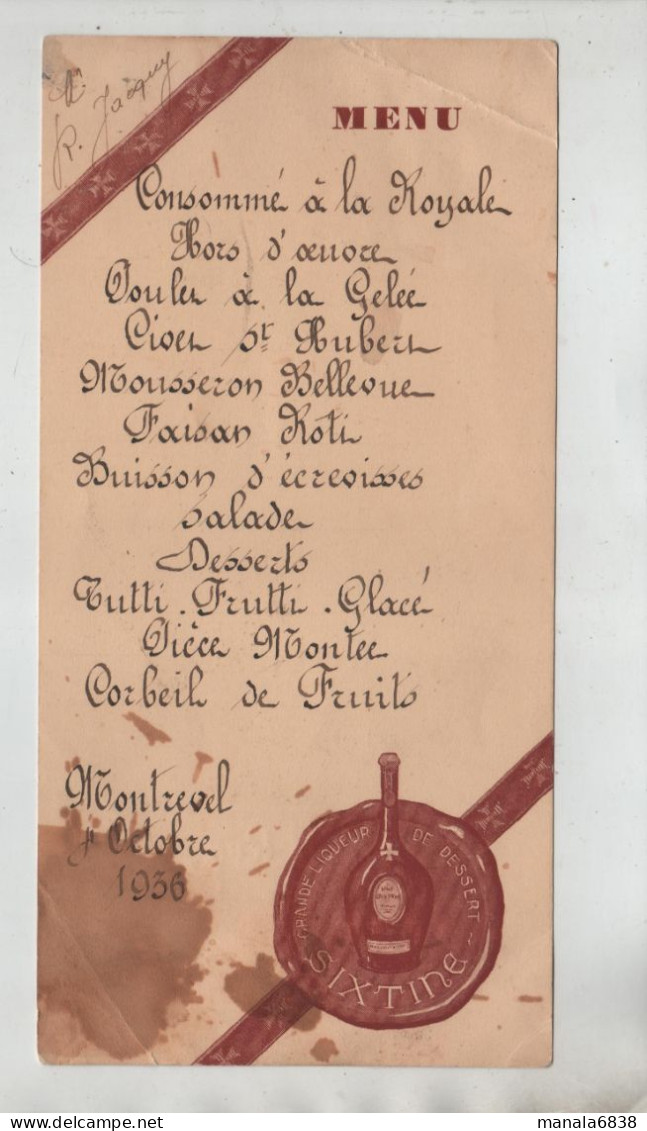 R. Jacquy
MENU
Consommé à la Royale
Hors d'œuvre
Poulet à la Gelée
Civet St Hubert
Mousseron Bellevue
Faisan Roti
Buisson d'écrevisses
Salade
Desserts
Tutti . Frutti . Glacé
Pièce Montee
Corbeil de Fruits
Montrevel
Octobre
1936
GRANDE LIQUEUR DE DESSERT
SIXTINE
© delcampe.net
manala6838